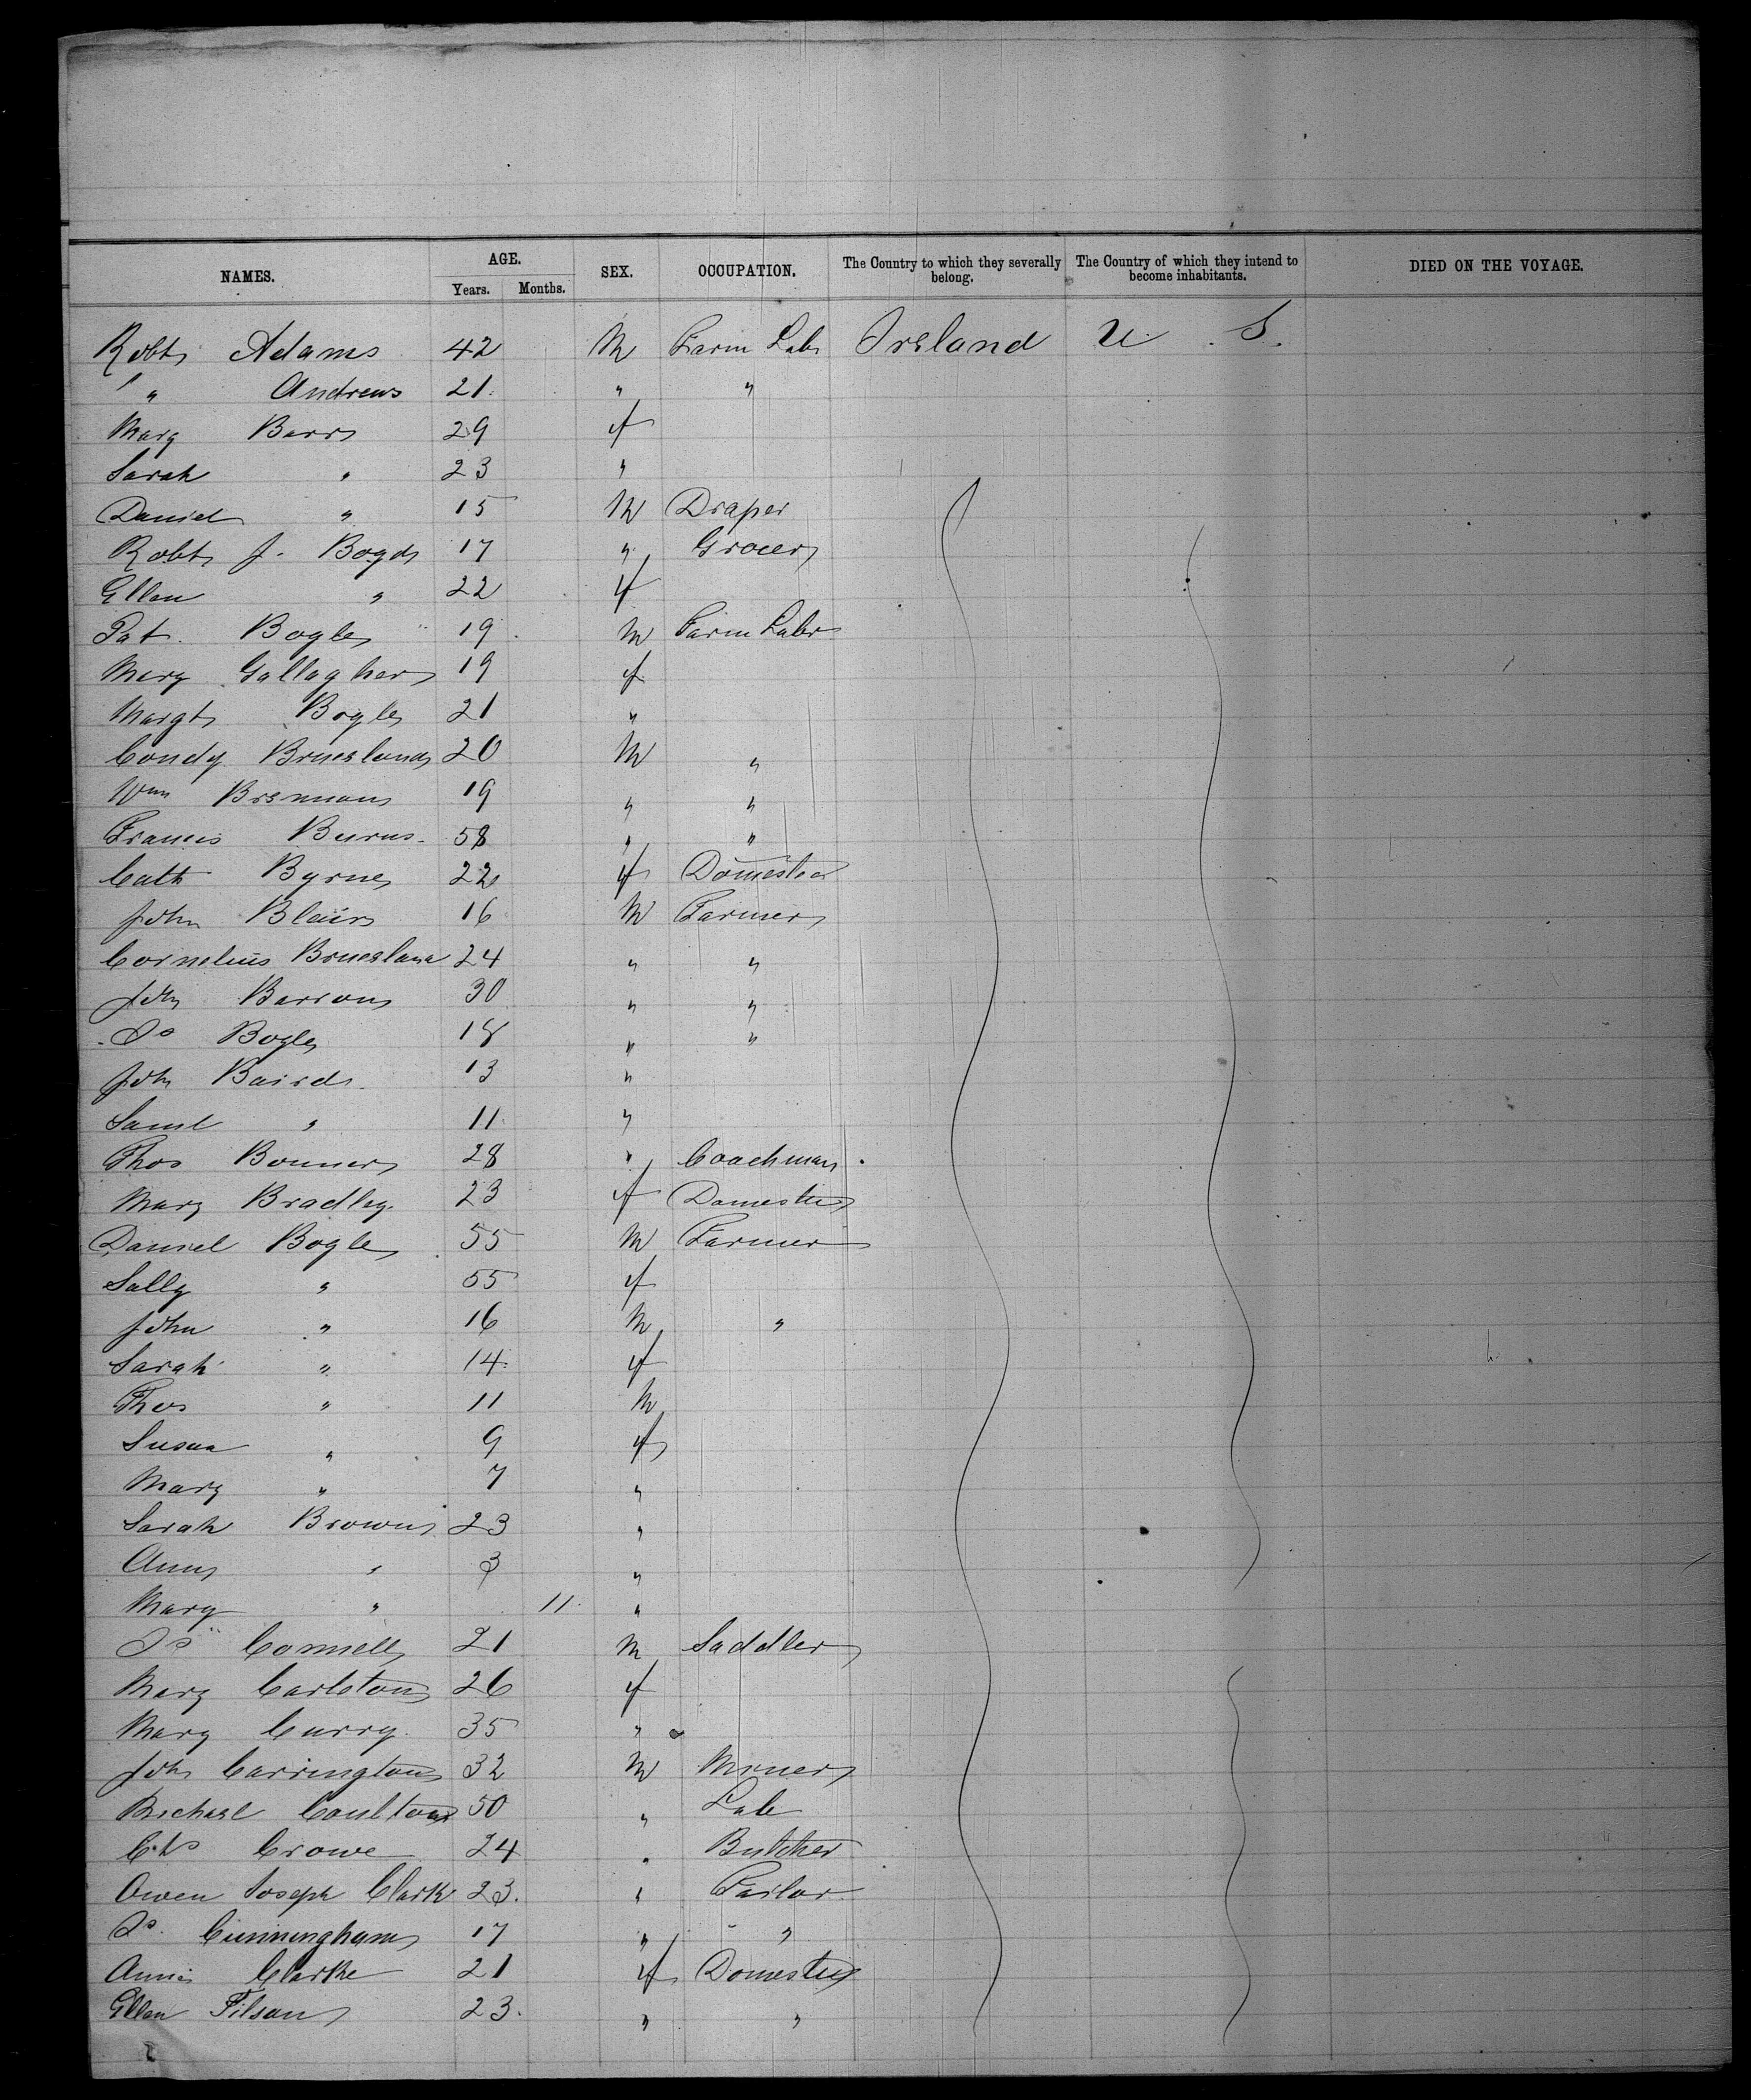 NAMES. AGE. SEX. OCCUPATION. The Country to which they severally belong. The Country of which they intend to become inhabitants. DIED ON THE VOYAGE.
Years. Months.
Robt Adams 42 M Farm Labr Ireland U. S.
" " Andrews 21 " "
Mary Barr 29 f
Sarah " 23 "
Daniel " 15 M Draper
Robt J. Boyd 17 " Grocer
Ellen " 22 f
Pat. Boyle 19 M Farm Labr
Mary Gallagher 19 f
Margt Boyle 21 "
Condy Bruesland 20 M "
Wm Brennan 19 " "
Francis Burns 58 " "
Cath Byrne 22 f Domestic
John Blair 16 M Farmer
Cornelius Brueslana 24 " "
John Barron 30 " "
Js Boyle 18 " "
John Baird 13 "
Saml " 11 "
Thos Bonner 28 " Coachman
Mary Bradley 23 f Domestic
Daniel Boyle 55 M Farmer
Sally " 55 f
John " 16 M "
Sarah " 14 f
Thos " 11 M
Susan " 9 f
Mary " 7 "
Sarah Brown 23 "
Ann " 3 "
Mary " 11 "
Js Connell 21 M Saddler
Mary Carlston 26 f
Mary Curry 35 "
John Carrington 32 M Miner
Michael Coulton 50 " Lab
Chs Crowe 24 " Butcher
Owen Joseph Clark 23. " Tailor
Js. Cunningham 17 " "
Annie Clarke 21 f Domestic
Ellen Filson 23. " "